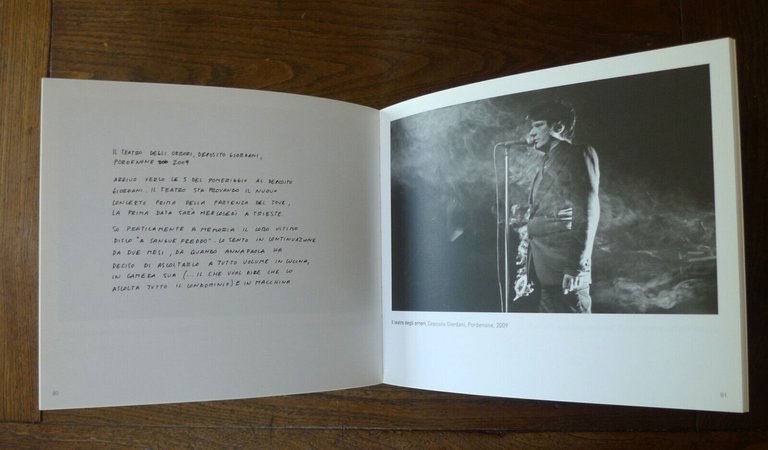 IL TEATRO DEGLI ORRORI, DEPOSITO GIORDANI,
PORDENONE 2009
ARRIVO VERSO LE 5 DEL POMERIGGIO AL DEPOSITO
GIORDANI. IL TEATRO STA PROVANDO IL NUOVO
CONCERTO PRIMA DELLA PARTENZA DEL TOUR,
LA PRIMA DATA SARÀ MERCOLEDÌ A TRIESTE.
SO PRATICAMENTE A MEMORIA IL LORO ULTIMO
DISCO "A SANGUE FREDDO". LO SENTO IN CONTINUAZIONE
DA DUE MESI, DA QUANDO ANNAPAOLA HA
DECISO DI ASCOLTARLO A TUTTO VOLUME IN CUCINA,
IN CAMERA SUA (...IL CHE VUOL DIRE CHE LO
ASCOLTA TUTTO IL CONDOMINIO) E IN MACCHINA
80
Il teatro degli orrori, Deposito Giordani, Pordenone, 2009
81